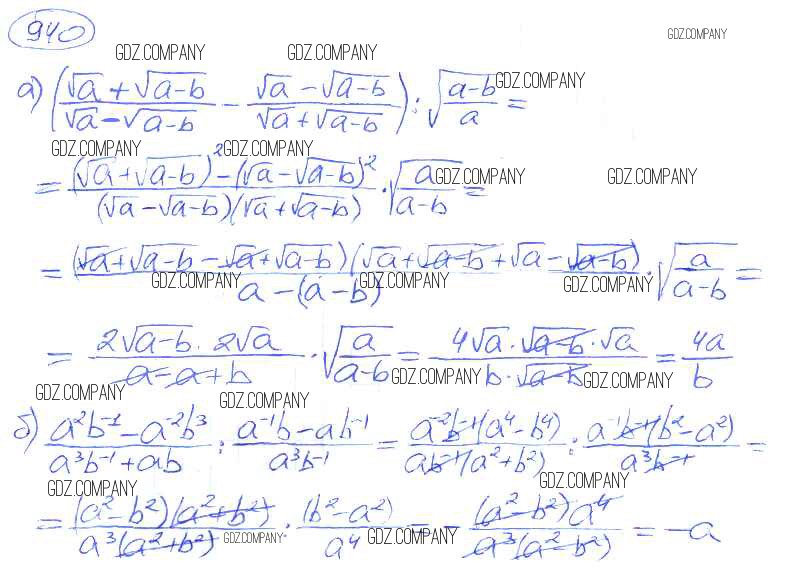 940
GDZ.COMPANY
GDZ.COMPANY GDZ.COMPANY
а) ((√a + √(a-b))/(√a - √(a-b)) - (√a - √(a-b))/(√a + √(a-b))) : √((a-b)/a) =
GDZ.COMPANY
GDZ.COMPANY GDZ.COMPANY
= ((√a + √(a-b))² - (√a - √(a-b))²)/((√a - √(a-b))(√a + √(a-b))) · √(a/(a-b)) =
GDZ.COMPANY GDZ.COMPANY
= ((√a + √(a-b) - √a + √(a-b))(√a + √(a-b) + √a - √(a-b)))/(a - (a-b)) · √(a/(a-b)) =
GDZ.COMPANY GDZ.COMPANY GDZ.COMPANY
= (2√(a-b) · 2√a)/(a - a + b) · √(a/(a-b)) = (4√a · √(a-b) · √a)/(b · √(a-b)) = 4a/b
GDZ.COMPANY GDZ.COMPANY
GDZ.COMPANY GDZ.COMPANY
б) (a²b⁻¹ - a⁻²b³)/(a³b⁻¹ + ab) : (a⁻¹b - ab⁻¹)/(a³b⁻¹) = (a⁻²b⁻¹(a⁴ - b⁴))/(ab⁻¹(a² + b²)) : (a⁻¹b⁻¹(b² - a²))/(a³b⁻¹) =
GDZ.COMPANY GDZ.COMPANY
= ((a² - b²)(a² + b²))/(a³(a² + b²)) · (b² - a²)/a⁴ = - ((a² - b²)a⁴)/(a³(a² - b²)) = -a
GDZ.COMPANY GDZ.COMPANY